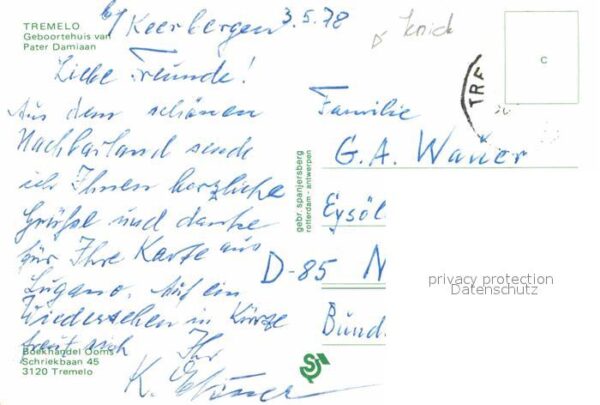 TREMELO
Geboortehuis van
Pater Damiaan
b/ Keerbergen 3.5.78
Knick
Liebe Freunde!
Aus dem schönen
Nachbarland sende
ich Ihnen herzliche
Grüße und danke
für Ihre Karte aus
Lugano. Auf ein
Wiedersehen in Kürze
freut sich Ihr
K.
Boekhandel Ooms
Schriekbaan 45
3120 Tremelo
gebr. spanjersberg
rotterdam - antwerpen
C
TRE
Familie
G. A. Waner
Eysöl
D-85 N
Bund
privacy protection
Datenschutz